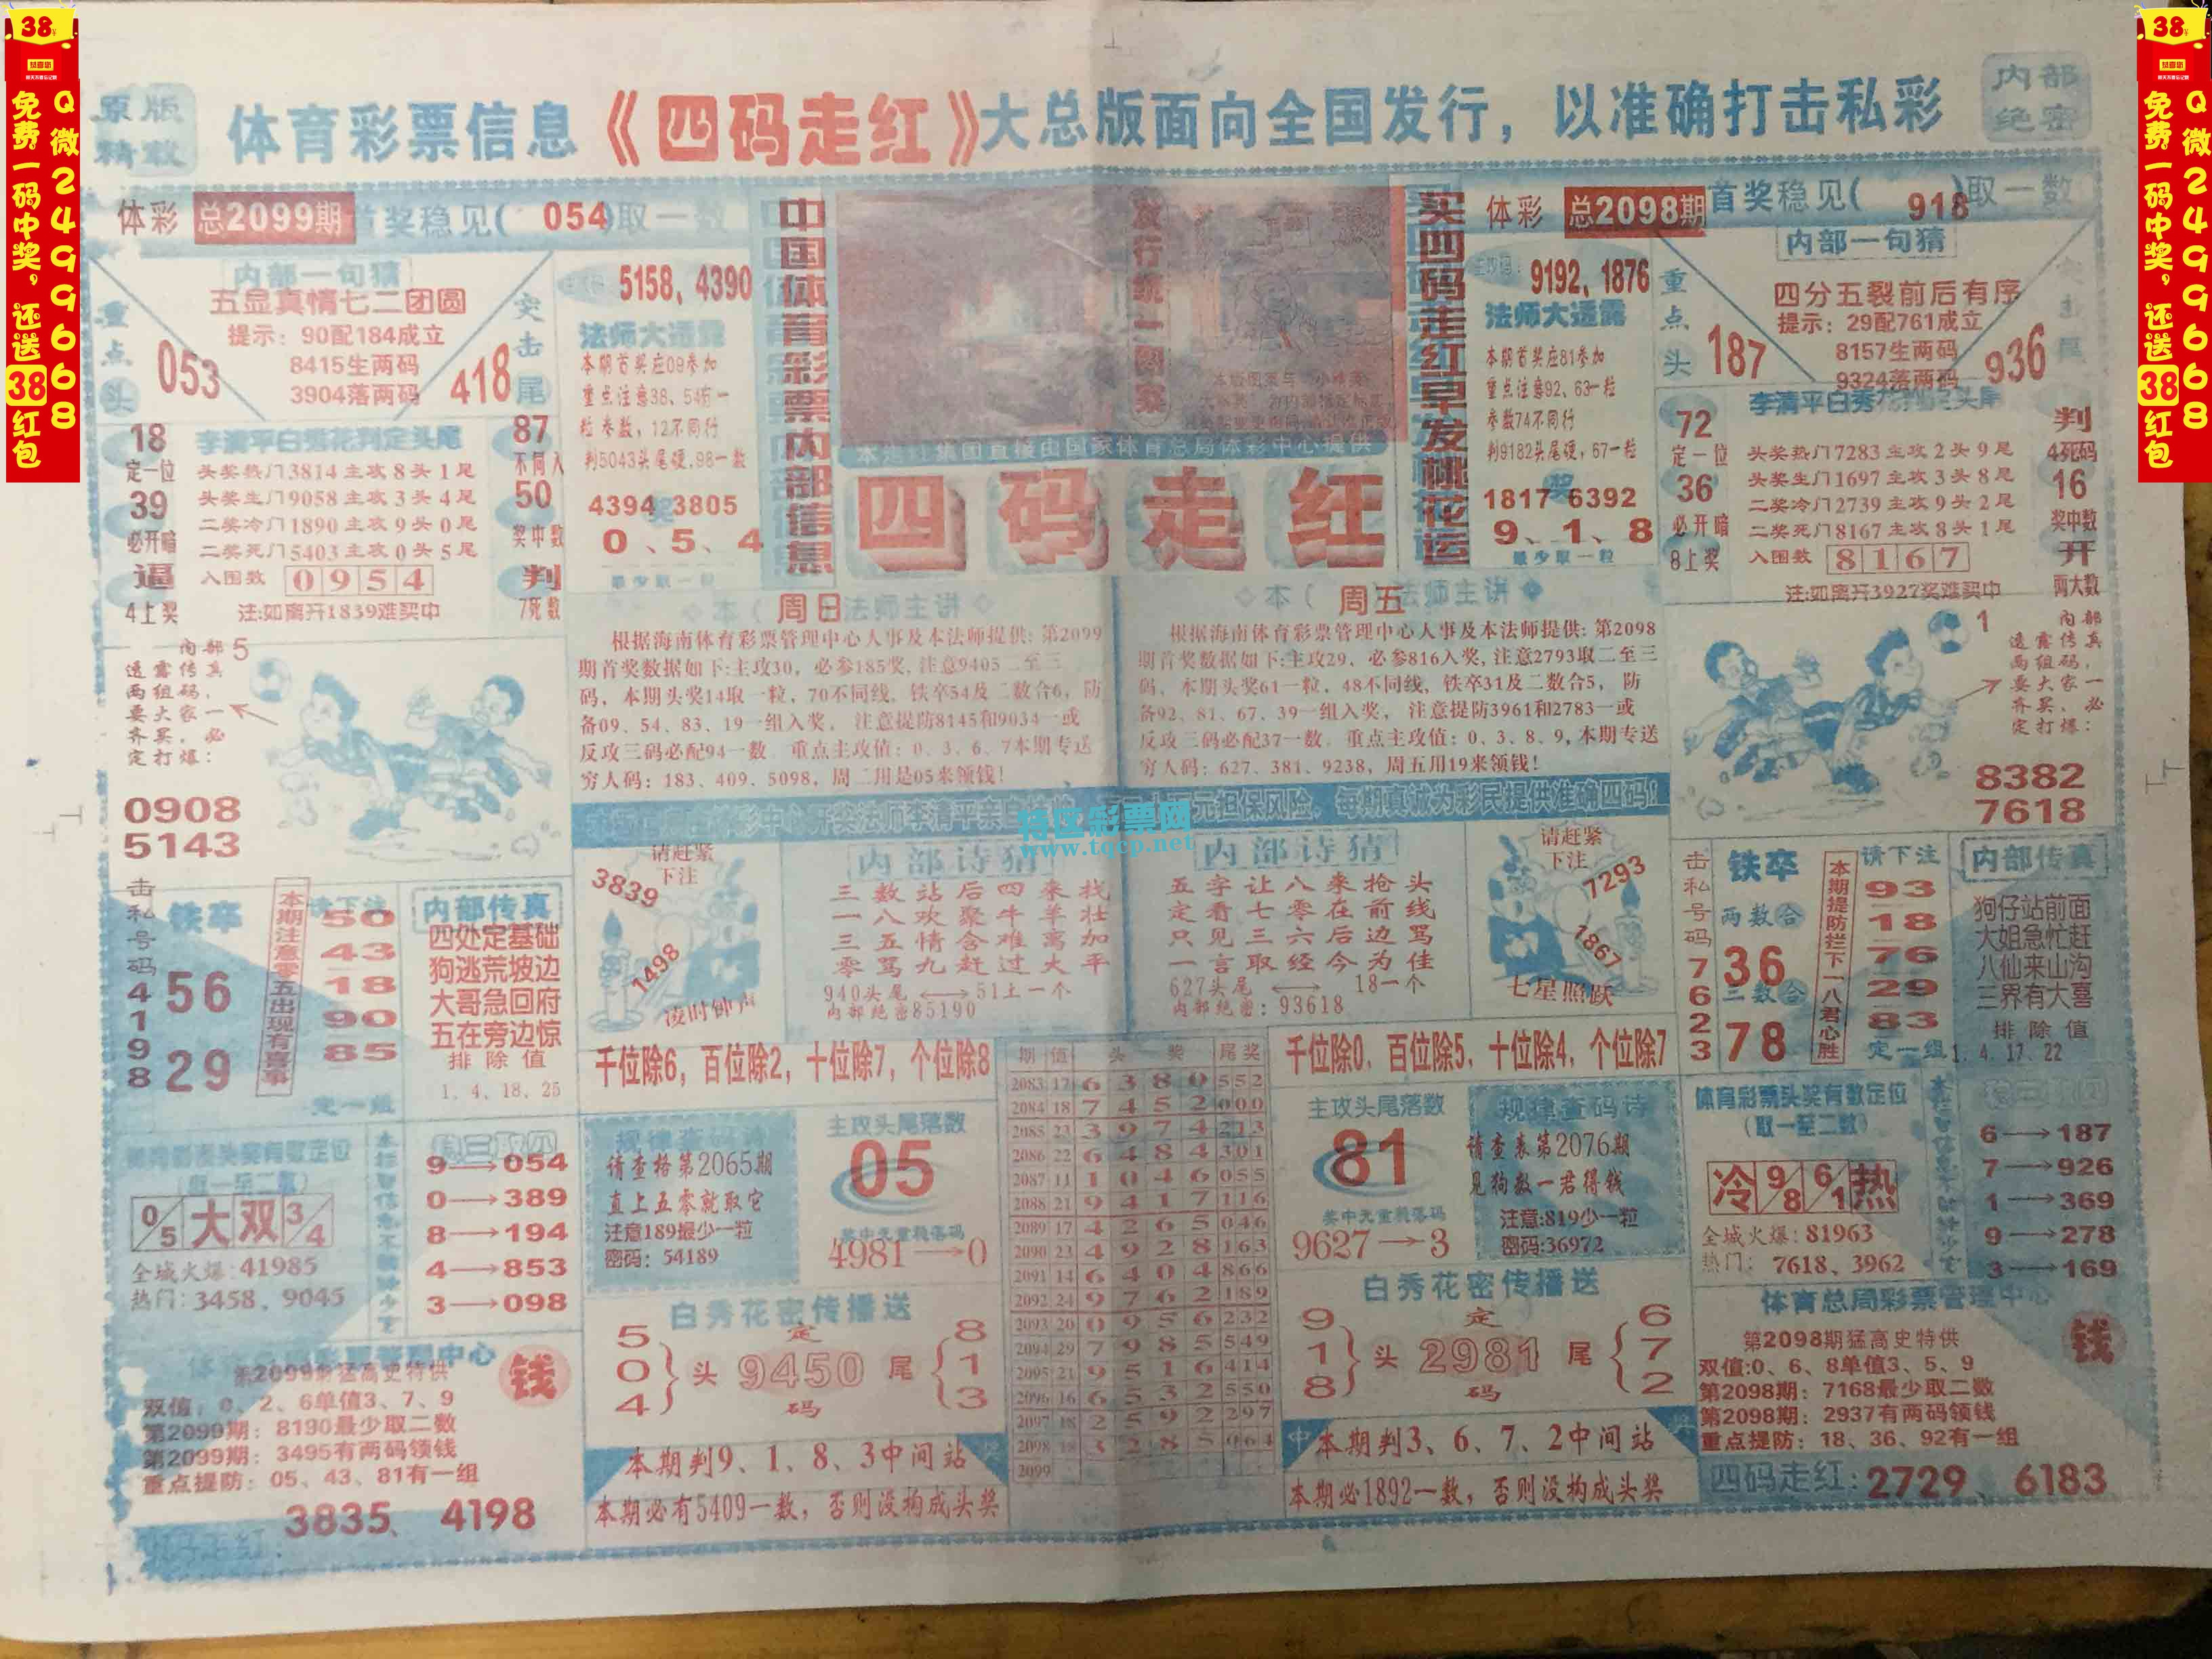 38
Q微24996668
免费一码中奖，还送38红包
原版
精致
体育彩票信息《四码走红》大总版面向全国发行，以准确打击私彩
内部
绝密
38
Q微24996668
免费一码中奖，还送38红包
体彩 总2099期 首奖稳见(054)取一数
内部一句猜
五显真情七二团圆
提示：90配184成立
8415生两码
3904落两码
重点头
053
突击尾
418
5158、4390
法师大透露
本期首奖应09参加
重点注意38、54有一
粒参数，12不同行
判5043头尾硬,98一数
4394 3805
奖
0、5、4
最少取一粒
18
定一位
39
必开暗
逼
4上奖
李清平白秀花判定头尾
头奖热门3814主攻8头1尾
头奖生门9058主攻3头4尾
二奖冷门1890主攻9头0尾
二奖死门5403主攻0头5尾
入围数 0954
注:如离开1839难买中
87
不同入
50
奖中数
判
7死数
中国体育彩票内部信息
发行统一图案
本报社集团直接由国家体育总局体彩中心提供
四码走红
买四码走红早发桃花运
体彩 总2098期 首奖稳见(918)取一数
主攻码：9192、1876
法师大透露
本期首奖应81参加
重点注意92、63一粒
参数74不同行
判9182头尾硬，67一粒
奖
1817 6392
9、1、8
最少取一粒
内部一句猜
四分五裂前后有序
提示：29配761成立
8157生两码
9324落两码
重点头
187
936
72
定一位
36
必开暗
8上奖
李清平白秀花判定头尾
头奖热门7283主攻2头9尾
头奖生门1697主攻3头8尾
二奖冷门2739主攻9头2尾
二奖死门8167主攻8头1尾
入围数 8167
注:如离开3927奖难买中
判
4死码
16
奖中数
开
两大数
本(周日)法师主讲
根据海南体育彩票管理中心人事及本法师提供: 第2099
期首奖数据如下:主攻30，必参185奖, 注意9405二至三
码，本期头奖14取一粒，70不同线，铁卒54及二数合6，防
备09、54、83、19一组入奖， 注意提防8145和9034一或
反攻三码必配94一数。重点主攻值：0、3、6、7本期专送
穷人码：183、409、5098，周二用是05来领钱！
本(周五)法师主讲
根据海南体育彩票管理中心人事及本法师提供: 第2098
期首奖数据如下:主攻29，必参816入奖, 注意2793取二至三
码，本期头奖61一粒，48不同线，铁卒31及二数合5， 防
备92、81、67、39一组入奖， 注意提防3961和2783一或
反攻三码必配37一数。重点主攻值：0、3、8、9, 本期专送
穷人码：627、381、9238，周五用19来领钱！
内部5
透露传真
两组码，
要大家一
齐买，必
定打爆：
0908
5143
1内部
透露传真
两组码，
要大家一
齐买，必
定打爆：
8382
7618
彩中心开奖法师李清平亲自 元担保风险，每期真诚为彩民提供准确四码！
特区彩票网
www.tqcp.net
击私号码4198
铁卒
56
29
本期注意零五出现有喜事
请下注
50
43
18
90
85
定一组
内部传真
四处定基础
狗逃荒坡边
大哥急回府
五在旁边惊
排除值
1、4、18、25
请赶紧
下注
3839
1498
凌时钟声
内部诗猜
三数站后四来找
一八欢聚牛羊壮
三五情含难离加
零骂九赶过大平
940头尾←→51土一个
内部绝密85190
内部诗猜
五字让八来抢头
定看七零在前线
只见三六后边骂
一言取经今为佳
627头尾←→ 18一个
内部绝密：93618
请赶紧
下注
7293
1867
七星照跃
击私号码7623
铁卒
两数合
36
三数合
78
本期提防拦下一八君心胜
请下注
93
18
76
29
83
定一组
内部传真
狗仔站前面
大姐急忙赶
八仙来山沟
三界有大喜
排除值
1、4、17、22
千位除6，百位除2，十位除7，个位除8
千位除0、百位除5、十位除4、个位除7
期 值 头奖 尾奖
2083 17 6380 552
2084 18 7452 000
2085 23 3974 213
2086 22 6484 301
2087 11 1046 055
2088 21 9417 116
2089 17 4265 046
2090 23 4928 163
2091 14 6404 866
2092 24 9762 189
2093 20 0956 232
2094 29 7985 549
2095 21 9516 414
2096 16 6532 550
2097 18 2592 297
2098 18 3285 064
2099
头奖有数定位
(取一至二数)
0/5大双3/4
全城火爆:41985
热门：3458、9045
9→054
0→389
8→194
4→853
3→098
规律查码诗
请查格第2065期
直上五零就取它
注意189最少一粒
密码：54189
主攻头尾落数
05
奖中无重耗落码
4981→0
白秀花密传播送
504}头 定9450码 尾{813
本期判9、1、8、3中间站
本期必有5409一数，否则没构成头奖
主攻头尾落数
81
奖中无重耗落码
9627→3
规律查码诗
请查表第2076期
见狗数一君得钱
注意:819少一粒
密码:36972
白秀花密传播送
918}头 定2981码 尾{672
中 本期判3、6、7、2中间站 奖
本期必1892一数，否则没构成头奖
体育彩票头奖有数定位
(取一至二数)
冷9/8 6/1热
全城火爆：81963
热门： 7618、3962
6→187
7→926
1→369
9→278
3→169
彩票管理中心
第2099期猛高史特供
钱
双值：0、2、6单值3、7、9
第2099期：8190最少取二数
第2099期：3495有两码领钱
重点提防：05、43、81有一组
四码走红：3835、4198
体育总局彩票管理中心
第2098期猛高史特供
钱
双值:0、6、8单值3、5、9
第2098期：7168最少取二数
第2098期：2937有两码领钱
重点提防：18、36、92有一组
四码走红：2729、6183